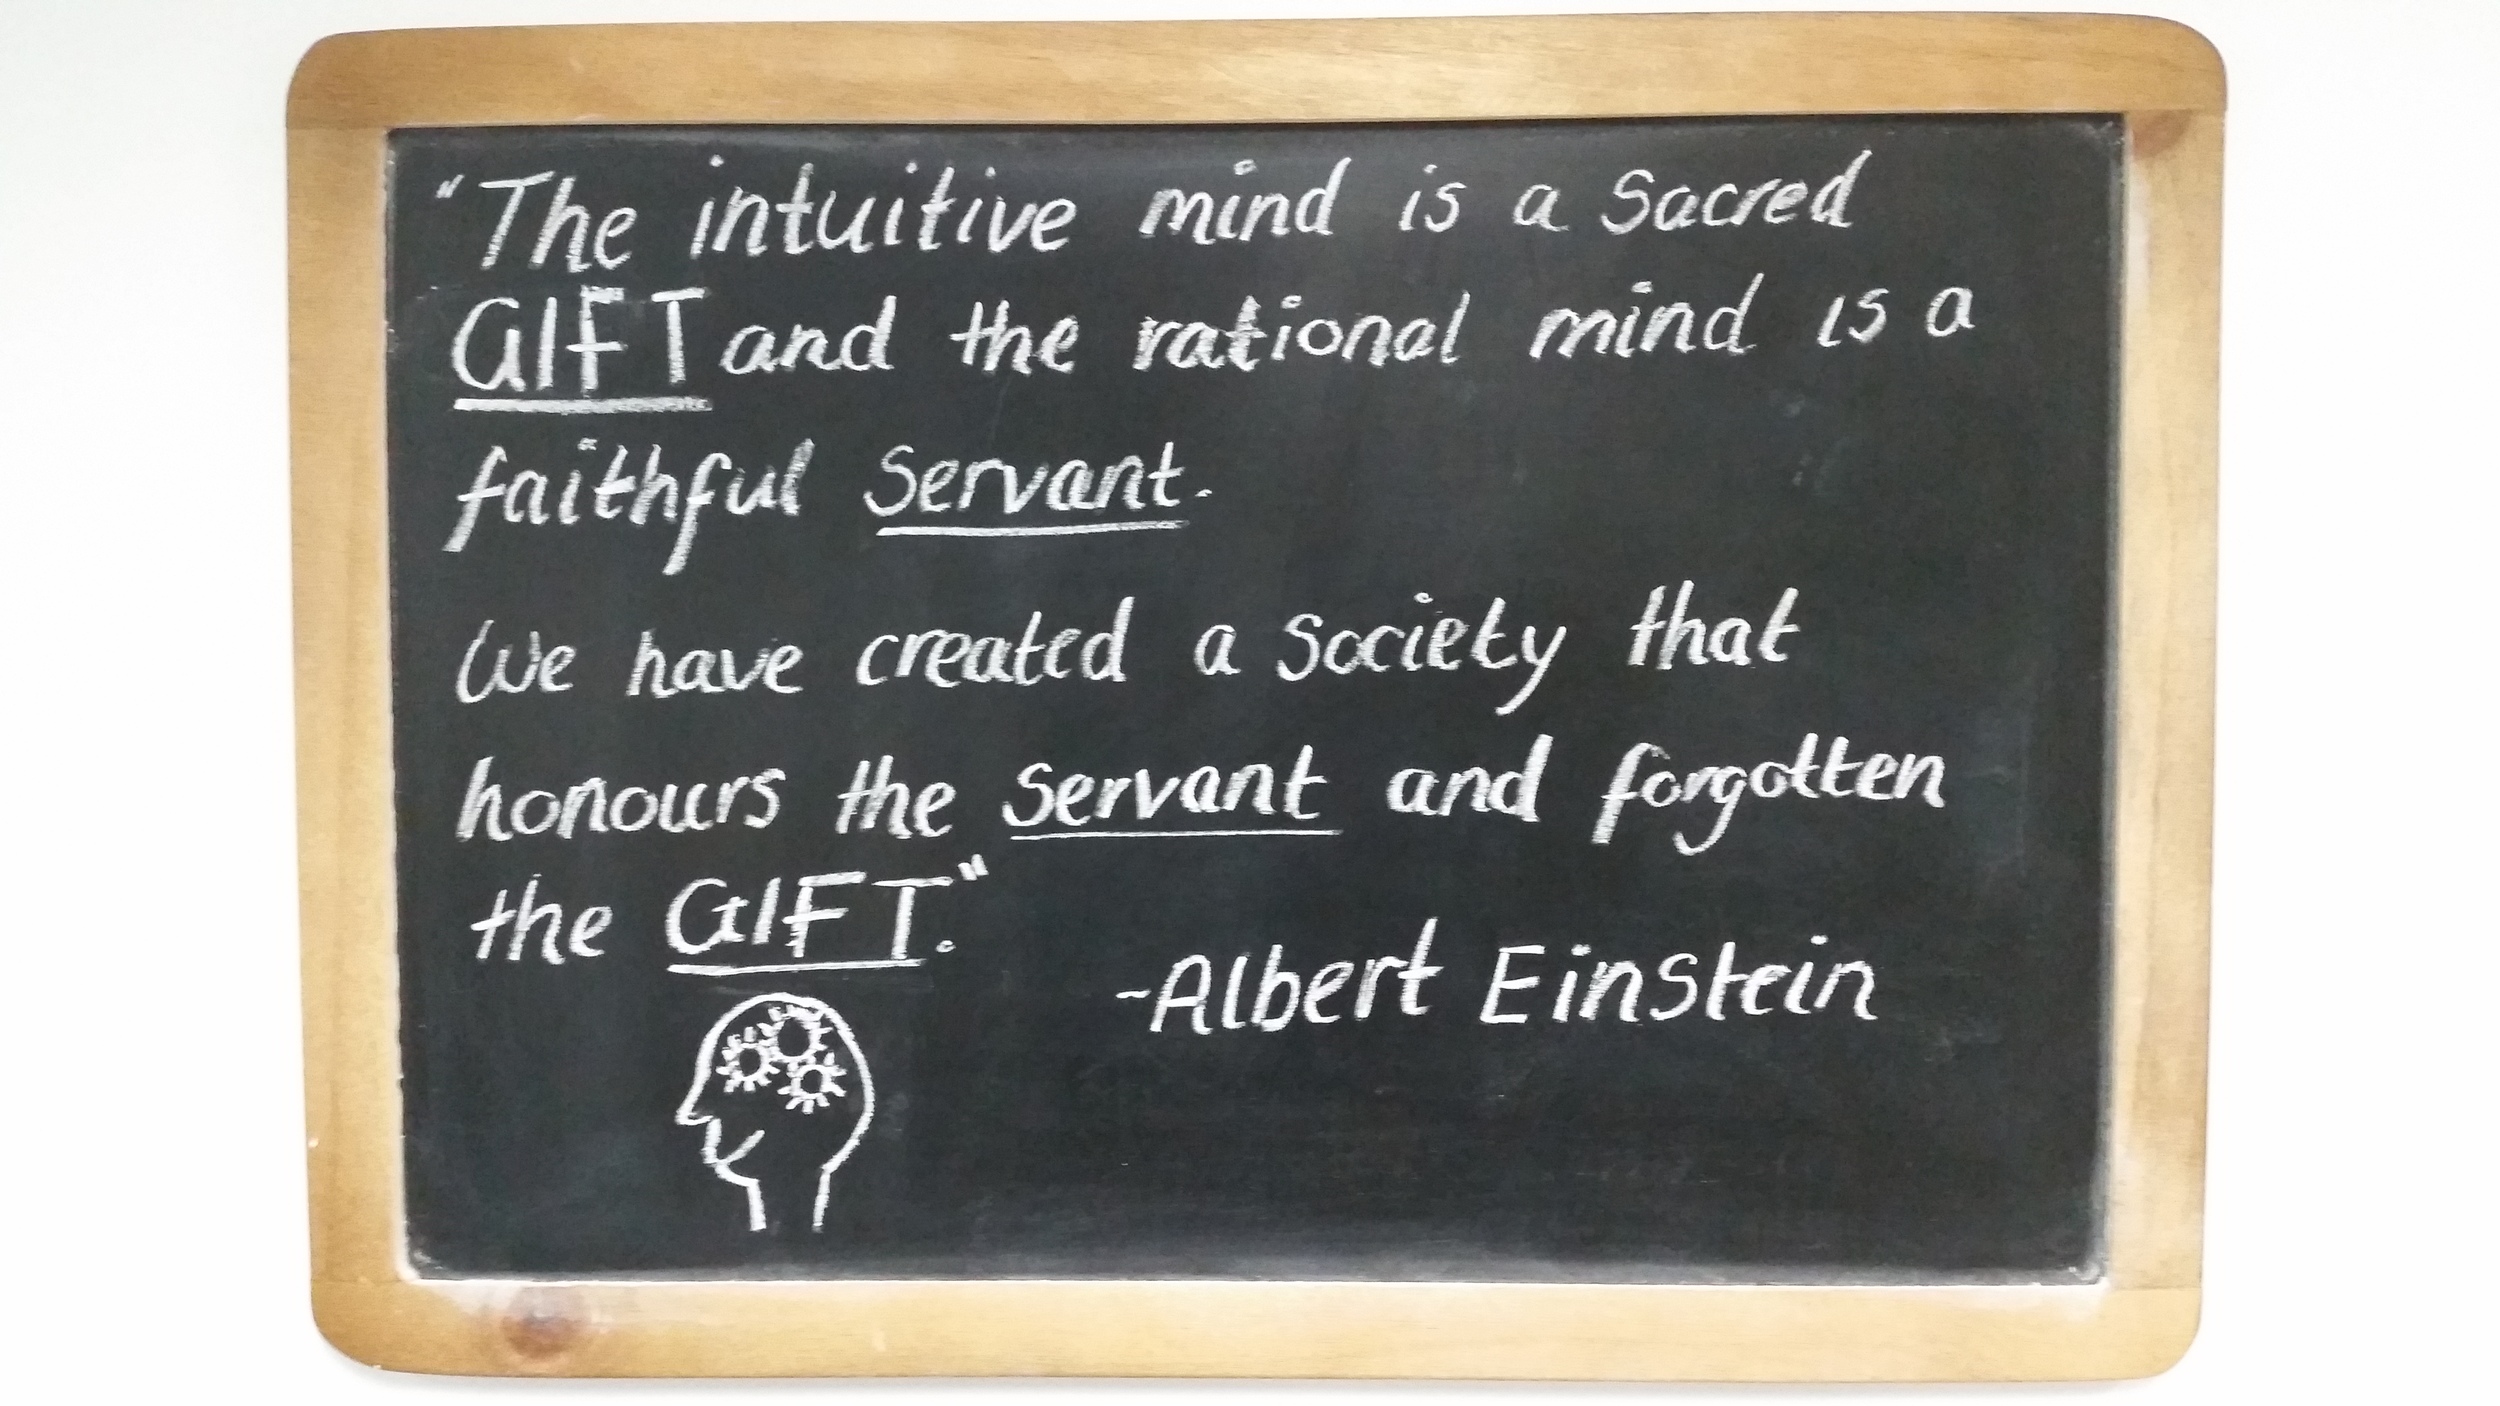 "The intuitive mind is a Sacred
GIFT and the rational mind is a
faithful Servant.
We have created a Society that
honours the Servant and forgotten
the GIFT."
-Albert Einstein